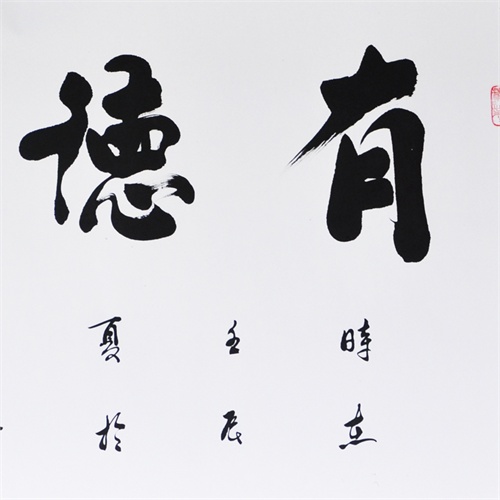 有德
時在
壬辰
夏於